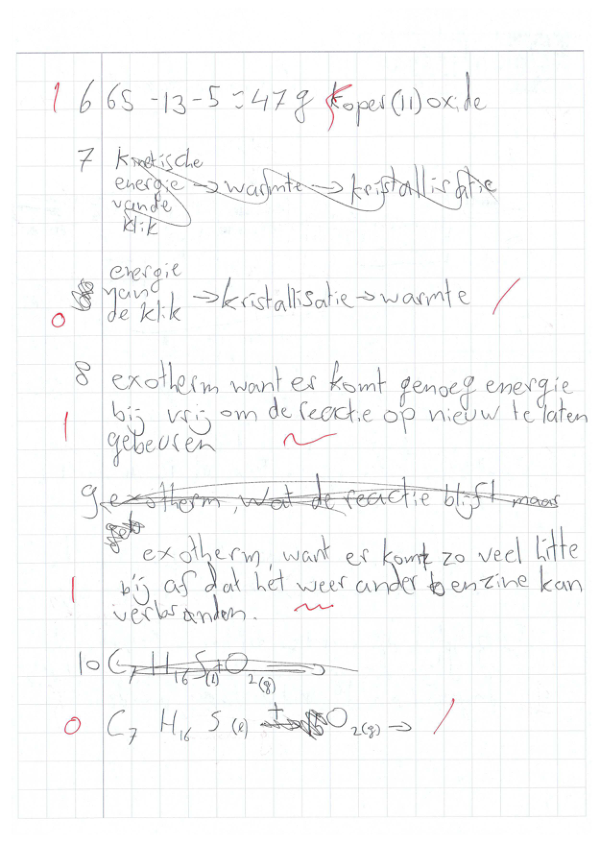 1 6 65 - 13 - 5 = 47 g koper(II) oxide
7 kinetische
energie → warmte → kristallisatie
van de
klik
energie
van
de klik → kristallisatie → warmte
0
8 exotherm want er komt genoeg energie
1 bij vrij om de reactie op nieuw te laten
gebeuren
9 exotherm, wat de reactie blijft maar
exotherm, want er komt zo veel hitte
1 bij af dat het weer ander benzine kan
verbranden.
10 C7 H16 S(l) + O2(g) →
0 C7 H16 S (l) + O2(g) →